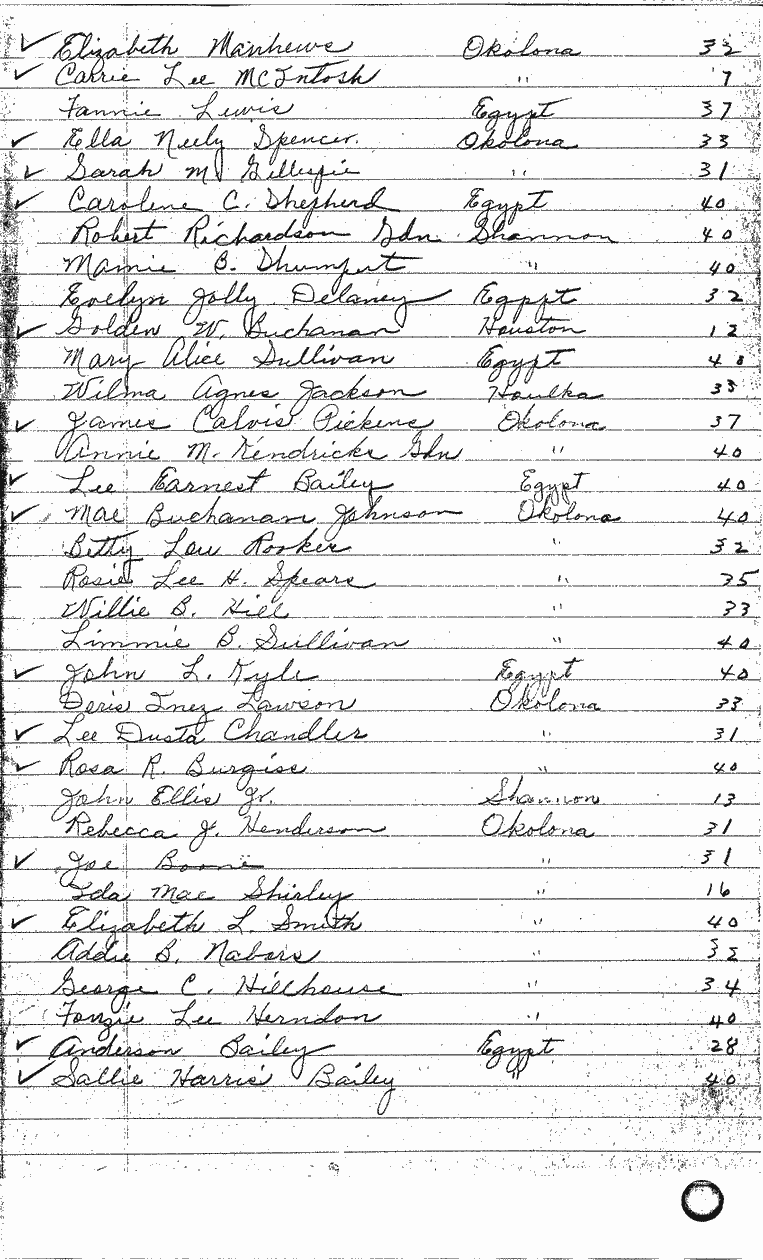 ✓ Elizabeth Manhews Okolona 32
✓ Carrie Lee McIntosh " 7
Fannie Lewis Egypt 37
✓ Ella Neely Spencer. Okolona 33
✓ Sarah M Gillespie " 31
✓ Carolene C. Shepherd Egypt 40
Robert Richardson Gdn Shannon 40
Mamie B. Shumpert " 40
Evelyn Jolly Delaney Egypt 32
✓ Golden W. Buchanan Houston 12
Mary Alice Sullivan Egypt 40
Wilma Agnes Jackson Houlka 33
✓ James Calvis Pickens Okolona 37
Annie M. Kendricks Gdn " 40
✓ Lee Earnest Bailey Egypt 40
✓ Mae Buchanan Johnson Okolona 40
Betty Lou Rooker " 32
Rosie Lee H. Spears " 35
Willie B. Hill " 33
Limmie B. Sullivan " 40
✓ John L. Kyle Egypt 40
Doris Inez Lawson Okolona 33
✓ Lee Dusta Chandler " 31
✓ Rosa R. Burgiss " 40
John Ellis Jr. Shannon 13
Rebecca J. Henderson Okolona 31
✓ Joe Boone " 31
Ida Mae Shirley " 16
✓ Elizabeth L. Smith " 40
Addie B. Nabors " 32
George C. Hillhouse " 34
Fonzie Lee Herndon " 40
✓ Anderson Bailey Egypt 28
✓ Sallie Harris Bailey " 40